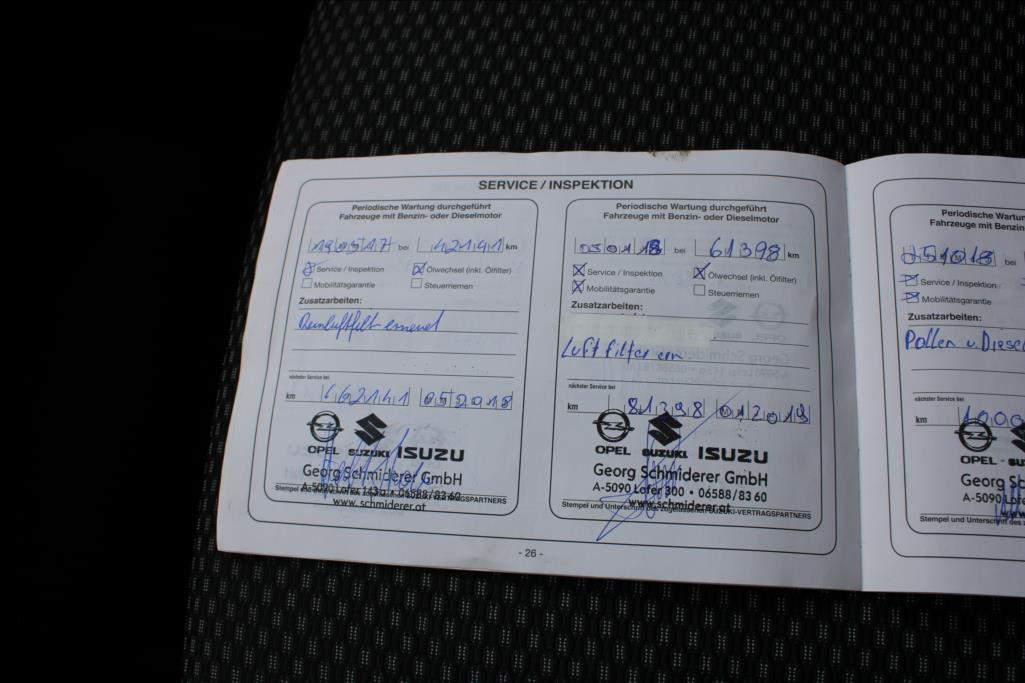 SERVICE / INSPEKTION
Periodische Wartung durchgeführt
Fahrzeuge mit Benzin- oder Dieselmotor
190517 bei 42141 km
Service / Inspektion Ölwechsel (inkl. Ölfilter)
Mobilitätsgarantie Steuerriemen
Zusatzarbeiten:
nächster Service bei
km 62141 052018
OPEL SUZUKI ISUZU
Georg Schmiderer GmbH
A-5090 Lofer 143a • 06588/83 60
Stempel und SUZUKI-VERTRAGSPARTNERS
www.schmiderer.at
Periodische Wartung durchgeführt
Fahrzeuge mit Benzin- oder Dieselmotor
050118 bei 61398 km
Service / Inspektion Ölwechsel (inkl. Ölfilter)
Mobilitätsgarantie Steuerriemen
Zusatzarbeiten:
Luftfilter ern
nächster Service bei
km 81398 012019
OPEL SUZUKI ISUZU
Georg Schmiderer GmbH
A-5090 Lofer 300 • 06588/83 60
www.schmiderer.at
Stempel und Unterschrift des zugelassenen SUZUKI-VERTRAGSPARTNERS
- 26 -
Periodische Wartung
Fahrzeuge mit Benzin-
051018 bei
Service / Inspektion
Mobilitätsgarantie
Zusatzarbeiten:
Pollen u. Diesel
nächster Service bei
km
OPEL
Georg Sc
A-5090 Lofer
Stempel und Unterschrift des